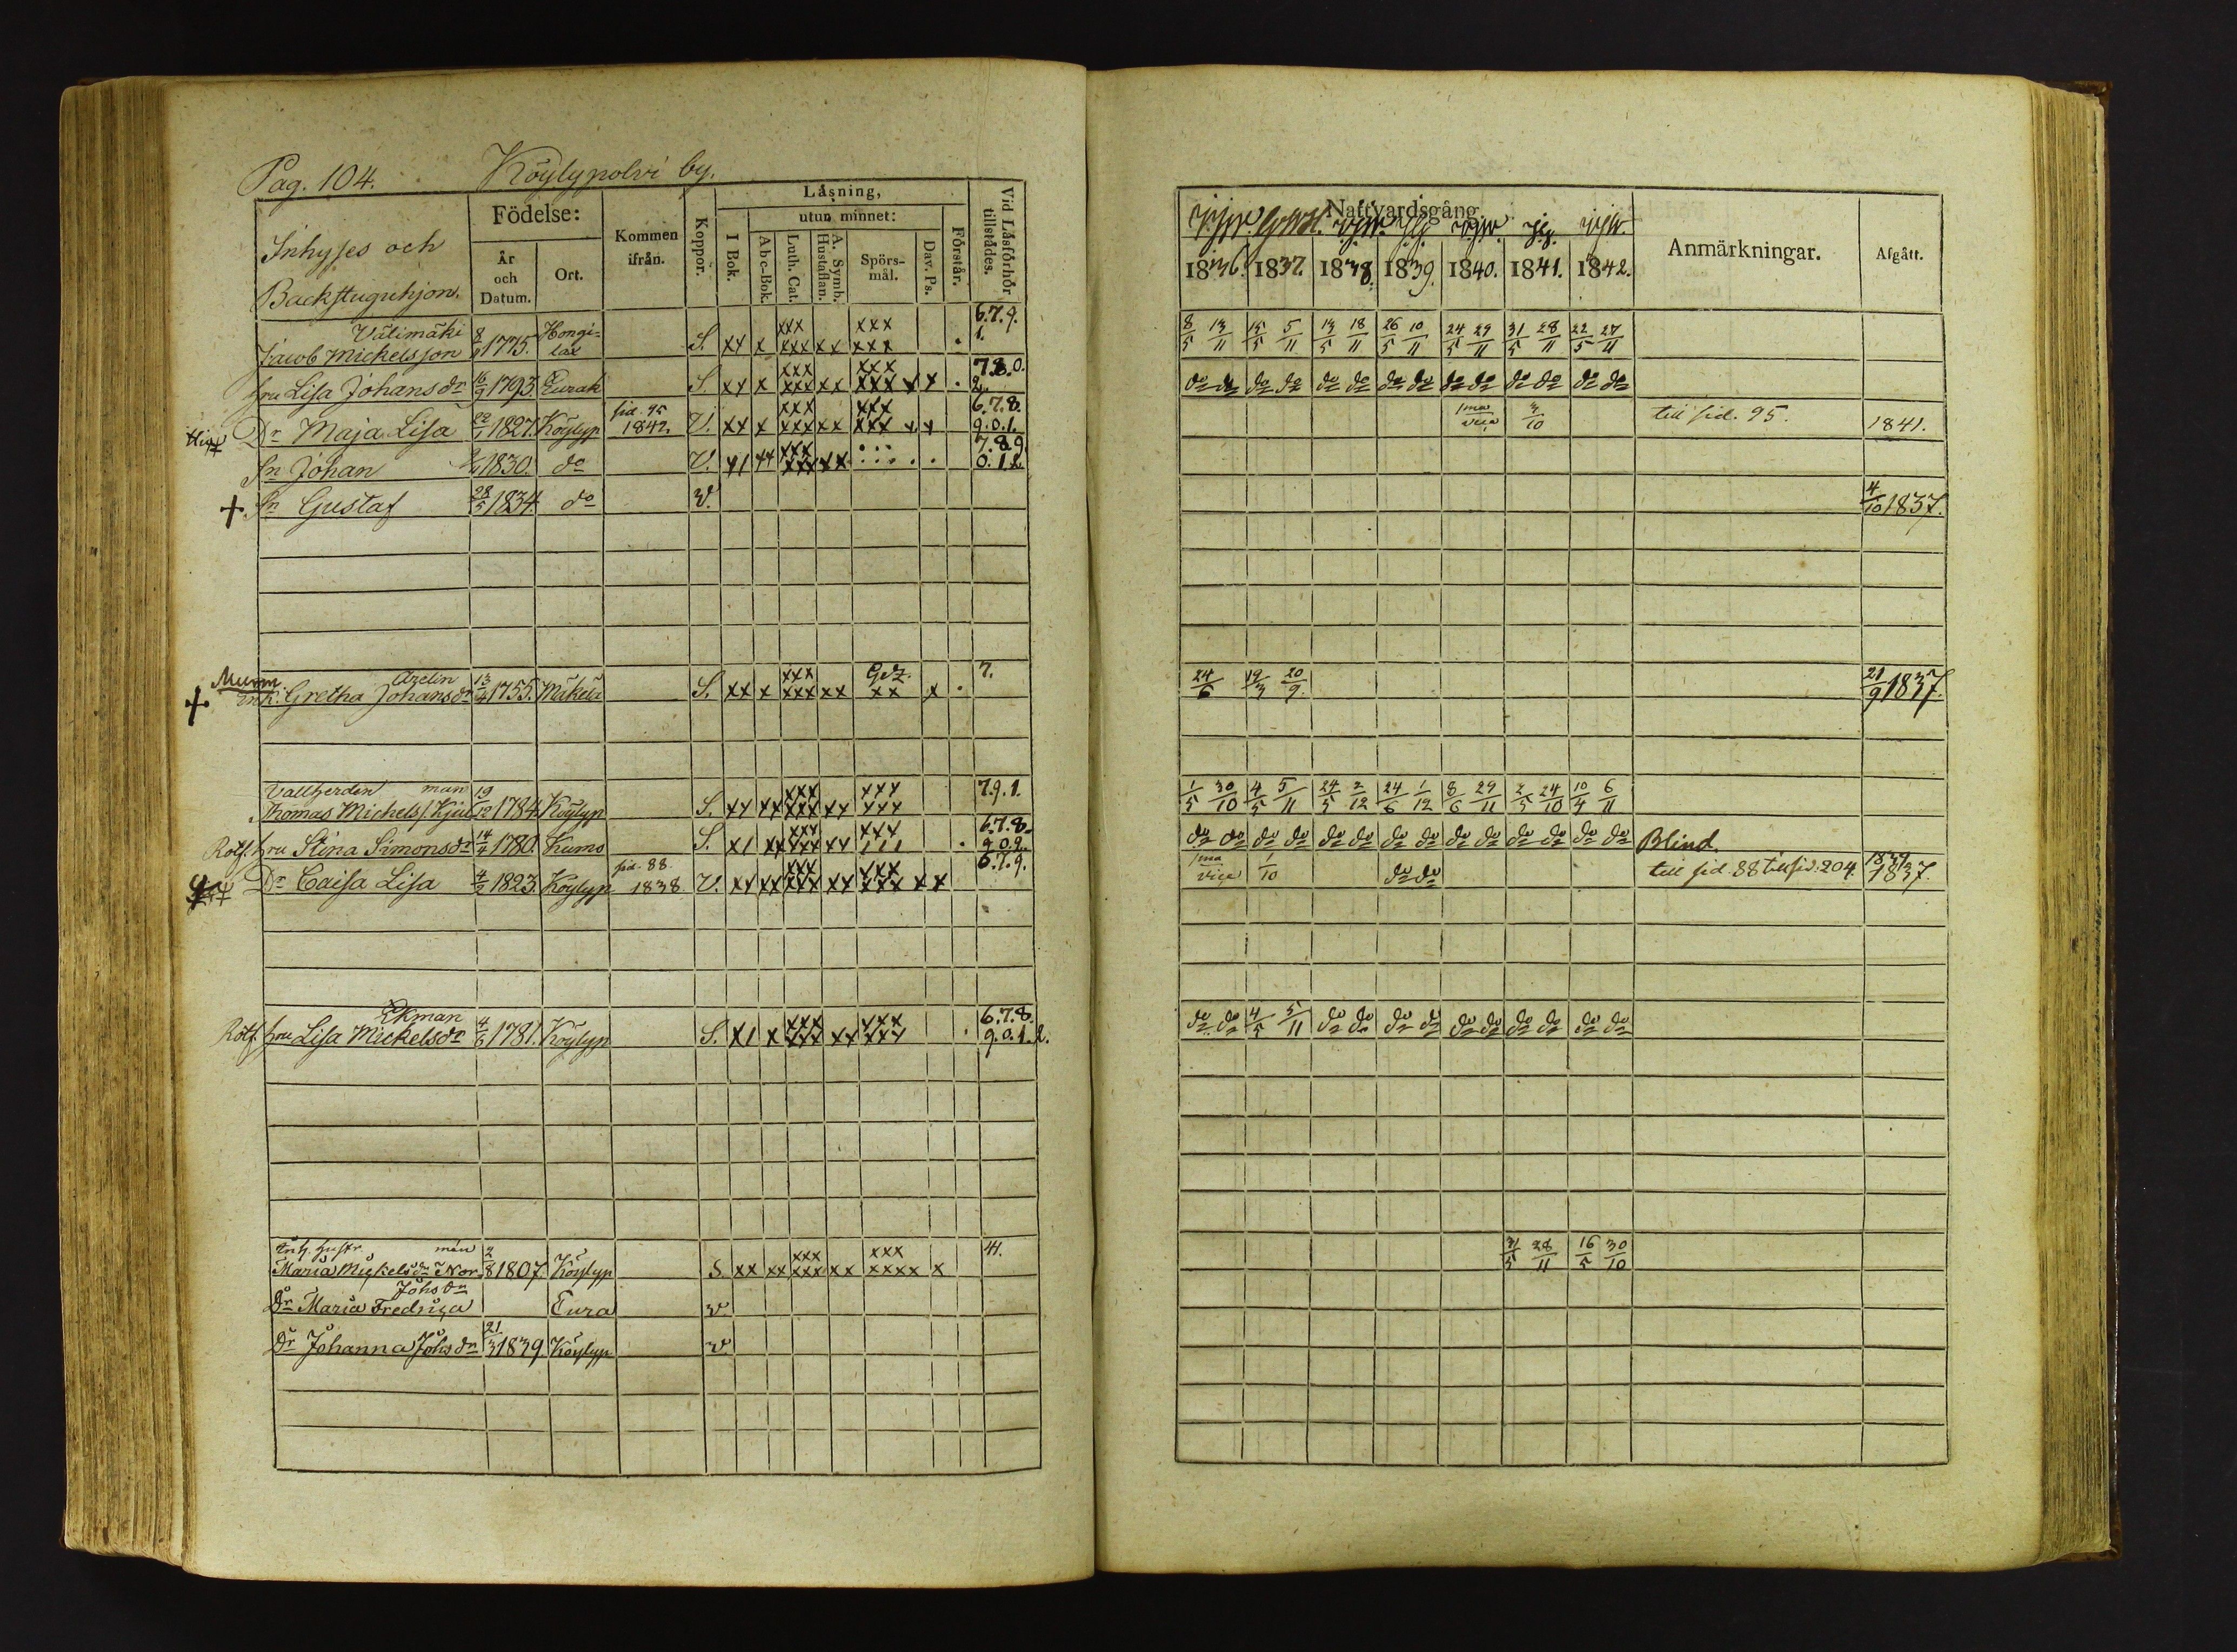 Pag. 104. Köylypolvi by.
Inhyses och
Backstuguhjon.
Födelse:
År och Datum.
Ort.
Kommen ifrån.
Koppor.
Låsning,
I Bok.
utun minnet:
Abc-Bok.
Luth. Cat.
A. Symb. Hustaflan.
Spörs-mål.
Dav. Ps.
Förstår.
Vid Låsförhör tillstådes.
Nattvardsgång
1836. 1837. 1838. 1839. 1840. 1841. 1842.
Anmärkningar.
Afgått.
Välimäki 8 Hongi- xxx xxx 6.7.9.
Jacob Mickelsson 1775. lax S. xx x xxx xx xxx . 1. 8/5 13/11 15/5 5/11 13/5 18/11 26/5 10/11 24/5 29/11 31/5 28/11 22/5 27/11
hru Lisa Johansdr 16/9 1793. Eurak S. xx x xxx xxx xx xxx xxx x x . 7.8.0. 2. do do do do do do do do do do do do do do
Dr Maja Lisa 22/1 1827. Köylyp sid. 95 1842. V. xx x xxx xxx xx xxx xxx x x 6.7.8. 9.0.1. 1ma vice 3/10 till sid. 95. 1841.
Sn Johan 1830. do V. x1 xx xxx xxx xx 7.8.9. 0.1.2.
+ Sn Gustaf 28/5 1834 do v. 4/10 1837.
Mumm Azelin
+ Enk. Gretha Johansdr 13/4 1755. Mäkelä S. xx x xxx xxx xx xx x . 7. 24/6 19/3 20/9 21/9 1837.
Vallherden man 19 xxx xxx 7.9.1.
Thomas Michels/Kjul 12 1784. Köylyp S. xx xx xxx xx xxx 1/5 30/10 4/5 5/11 24/5 2/12 24/6 1/12 8/6 29/11 2/5 24/10 10/4 6/11
Rotf. hru Stina Simonsdr 14/4 1780. Kumo S. x1 xx xxx xxx xx xxx 111 . 6.7.8. 9.0.2. do do do do do do do do do do do do do do Blind.
Dr Caisa Lisa 4/2 1823 Köylyp sid. 88. 1838 V. xx xx xxx xxx xx xxx xxx x x 6.7.9. 1ma vice 1/10 do do till sid. 88 till sid. 204. 1839. 1837.
Ekman
Rotf. hru Lisa Mickelsdr 4/6 1781. Köylyp S. x1 x xxx xxx xx xxx xxx . 6.7.8. 9.0.1.2. do do 4/5 5/11 do do do do do do do do do do
Inh. hustr. män 2 xxx xxx 41.
Maria Mickelsdr Nor 8 1807. Köylyp S xx xx xxx xx xxxx x 31/5 28/11 16/5 30/10
Johsdn
Dr Maria Fredrica Eura v.
Dr Johanna Johsdn 21/3 1839 Köylyp v.